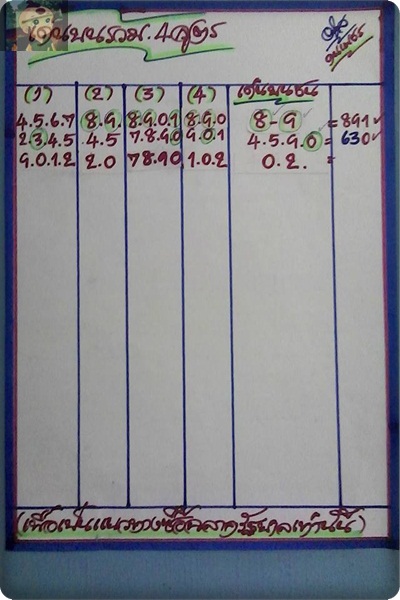 เด่นบนรวม. 4 สูตร
(1) (2) (3) (4) เด่นบนชน
4.5.6.7 8.9. 8.9.0.1 8.9.0 8-9 = 891
2.3.4.5 4.5 7.8.9.0 9.0.1 4.5.9.0 = 630
9.0.1.2 2.0 7890 1.0.2 0.2. =
(เพื่อเป็นแนวทางซื้อสลากรัฐบาลเท่านั้น)